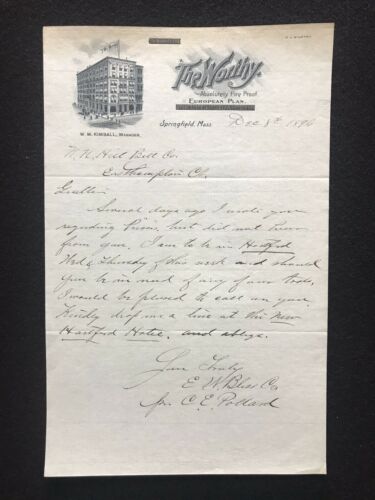 The Worthy.
Absolutely Fire Proof.
European Plan.
W. M. Kimball, Manager.
Springfield, Mass. Dec 8th 1896
N.N. Hill Bell Co.
Easthampton Ct.
Gentlemen
Several days ago I wrote you
regarding Presses, but did not hear
from you. I am to be in Hartford
Wed & Thursday of this week and should
you be in need of any of our tools,
I would be pleased to call on you.
Kindly drop me a line at the New
Hartford Hotel, and oblige.
Yours Truly
E. W. Bliss Co
per C. E. Pollard